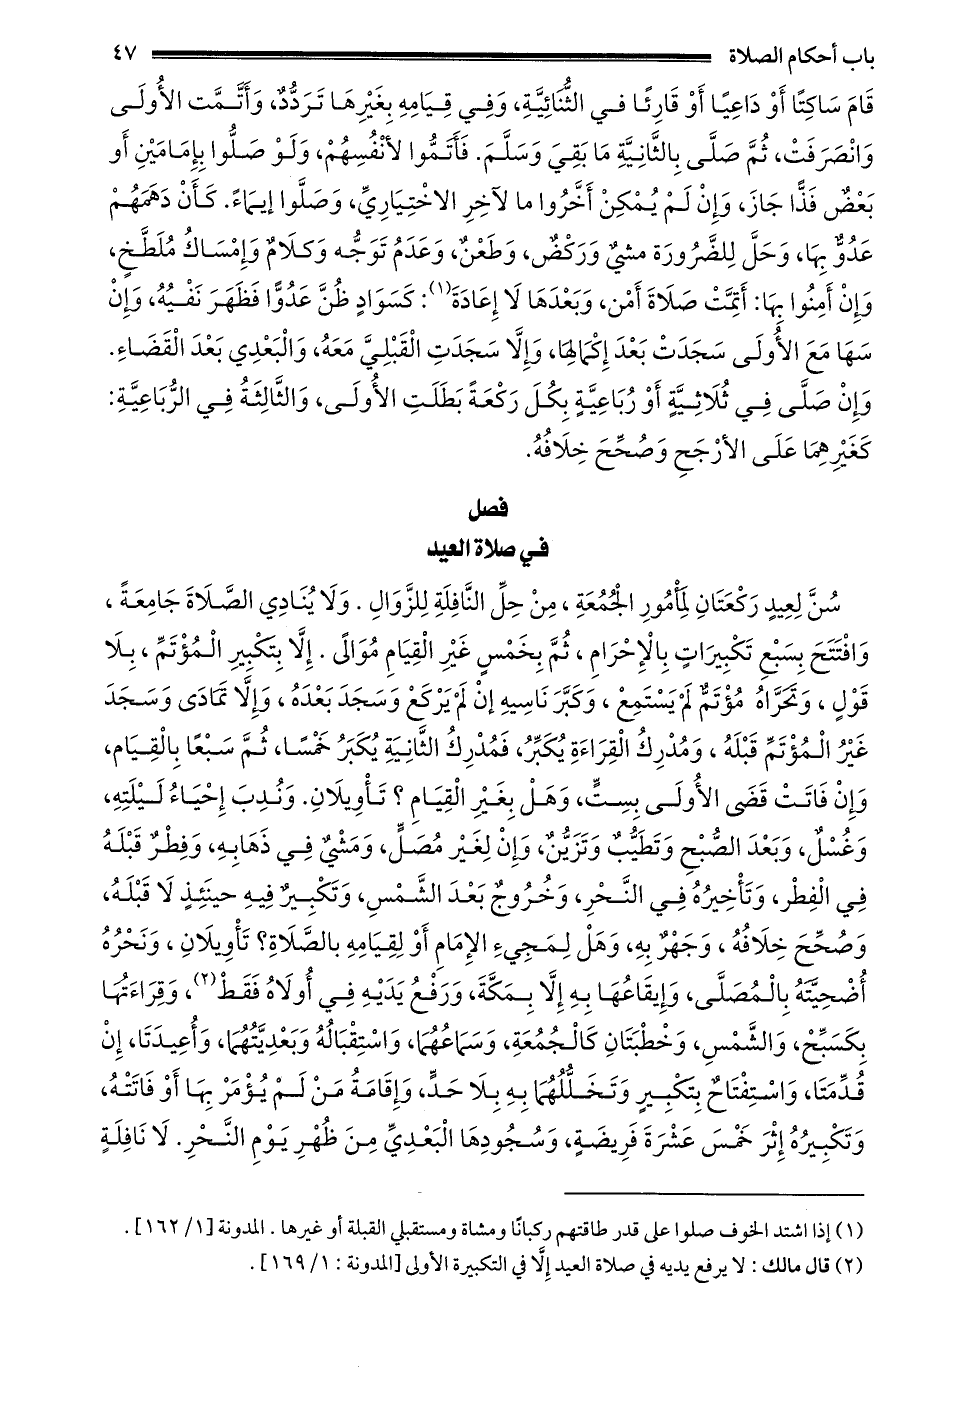 باب أحكام الصلاة ٤٧
قَامَ سَاكِتًا أَوْ دَاعِيًا أَوْ قَارِئًا فـي الثُّنَائِيَّةِ، وَفـي قِـيَامِهِ بِغَيْرِهَا تَرَدُّدٌ، وَأَتَـمَّت الأُولَـى
وَانْصَرَفَتْ، ثُمَّ صَلَّى بِالثَّانِيَةِ مَا بَقِيَ وَسَلَّمَ. فَأَتَـمُّوا لأنْفُسِهِمْ، وَلَوْ صَلُّوا بِإِمَامَيْنِ أَو
بَعْضٌ فَذًّا جَازَ، وَإِنْ لَـمْ يُـمْكِنْ أَخَّرُوا ما لآخِرِ الاخْتِيَارِيِّ، وَصَلَّوا إيـمَاءً. كَـأَنْ دَهَمَهُمْ
عَدُوٌّ بِهَا، وَحَلَّ لِلضَّرُورَة مشيٌ وَرَكْضٌ، وَطَعْنٌ، وَعَدَمُ تَوَجُّه وَكَـلامٌ وَإِمْسَـاكُ مُلَطَّخٍ،
وَإِنْ أَمِنُوا بِهَا: أَتِمَّتْ صَلَاةَ أَمْنٍ، وَبَعْدَهَا لَا إِعَادَةَ(١): كَسَوَادٍ ظُنَّ عَدُوًّا فَظَهَرَ نَفْيُهُ، وَإِنْ
سَهَا مَعَ الأُولَـى سَجَدَتْ بَعْدَ إِكْمَالِهَا، وَإِلَّا سَجَدَتِ الْقَبْلِيَّ مَعَهُ، وَالْبَعْدِي بَعْدَ الْقَضَاءِ.
وَإِنْ صَلَّى فِـي ثُلَاثِيَّةٍ أَوْ رُبَاعِيَّةٍ بِكُـلَ رَكْعَةً بَطَلَتِ الأُولَـى، وَالثَّالِثَةُ فِـي الرُّبَاعِيَّةِ:
كَغَيْرِهِمَا عَلَـى الأَرْجَحِ وَصُحِّحَ خِلَافُهُ.
فصل
فـي صلاة العيد
سُنَّ لِعِيدٍ رَكْعَتَانِ لِمَأْمُورِ الجُمُعَةِ، مِنْ حِلِّ النَّافِلَةِ لِلزَّوَالِ. وَلَا يُنَادِي الصَّلَاةَ جَامِعَةً،
وَافْتَتَحَ بِسَبْعِ تَكْبِيرَاتٍ بِالْإِحْرَامِ، ثُمَّ بِخَمْسٍ غَيْرِ الْقِيَامِ مُوَالًى. إِلَّا بِتَكْبِيرِ الْـمُؤْتَمِّ، بِـلَا
قَوْلٍ، وَتَحَرَّاهُ مُؤْتَمٌّ لَمْ يَسْتَمِعْ، وَكَبَّرَ نَاسِيهِ إنْ لَمْ يَرْكَعْ وَسَجَدَ بَعْدَهُ، وَإِلَّا تَمَادَى وَسَـجَدَ
غَيْرُ الْـمُؤْتَمِّ قَبْلَهُ، وَمُدْرِكُ الْقِرَاءَةِ يُكَبِّرُ، فَمُدْرِكُ الثَّانِيَةِ يُكَبِّرُ خَمْسًـا، ثُـمَّ سَبْعًا بِالْقِيَامِ،
وَإِنْ فَاتَـتْ قَضَى الأُولَـى بِسِـتٍّ، وَهَـلْ بِغَيْرِ الْقِيَامِ؟ تَـأْوِيلَانِ. وَنُـدِبَ إِحْيَاءُ لَـيْلَتِهِ،
وَغُسْلٌ، وَبَعْدَ الصُّبْحِ وَتَطَيُّبٌ وَتَزَيُّنٌ، وَإِنْ لِغَيْرِ مُصَـلٍّ، وَمَشْيٌ فِـي ذَهَابِهِ، وَفِطْرٌ قَبْلَهُ
فِي الْفِطْرِ، وَتَأْخِيرُهُ فِـي النَّـحْرِ، وَخُرُوجٌ بَعْدَ الشَّـمْسِ، وَتَكْبِـيرٌ فِيهِ حينَئِذٍ لَا قَبْلَهُ،
وَصُحِّحَ خِلَافُهُ، وَجَهْرٌ بِهِ، وَهَلْ لِـمَجِيءِ الإِمَامِ أَوْ لِقِيَامِهِ بِالصَّلَاةِ؟ تَأْوِيلَانِ، وَنَحْرُهُ
أُضْحِيَّتَهُ بِالْـمُصَلَّى، وَإِيقَاعُهَا بِهِ إِلَّا بِـمَكَّةَ، وَرَفْعُ يَدَيْهِ فِـي أُولَاهُ فَقَطْ(٢)، وَقِرَاءَتُهَا
بِكَسَبِّحْ، وَالشَّمْسِ، وَخُطْبَتَانِ كَالْـجُمُعَةِ، وَسَمَاعُهُمَا، وَاسْتِقْبَالُهُ وَبَعْدِيَّتُهُمَا، وَأُعِيدَتَا، إِنْ
قُدِّمَتَا، وَاسْـتِفْتَاحٌ بِتَكْـبِيرٍ وَتَـخَلُّلُهُمَا بِهِ بِلَا حَـدٍّ، وَإِقَامَةُ مَـنْ لَـمْ يُـؤْمَرْ بِـهَا أَوْ فَاتَتْـهُ،
وَتَكْبِيرُهُ إِثْرَ خَمْسَ عَشْرَةَ فَرِيضَةٍ، وَسُـجُودِهَا الْبَعْدِيِّ مِـنَ ظُهْرِ يَـوْمِ النَّـحْرِ. لَا نَافِلَةٍ
(١) إذا اشتد الخوف صلوا على قدر طاقتهم ركبانًا ومشاة ومستقبلي القبلة أو غيرها. المدونة [١/ ١٦٢].
(٢) قال مالك: لا يرفع يديه في صلاة العيد إلَّا في التكبيرة الأولى [المدونة: ١/ ١٦٩].